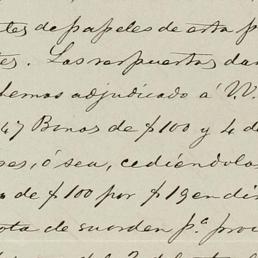 tes de papeles de esta p
tes. Las respuestas da
hemos adjudicado á VV.
47 Bonos de $100 y 4 d
ses, ó sea, cediéndola
de $100 por $19 en di
ota de su orden pª prov